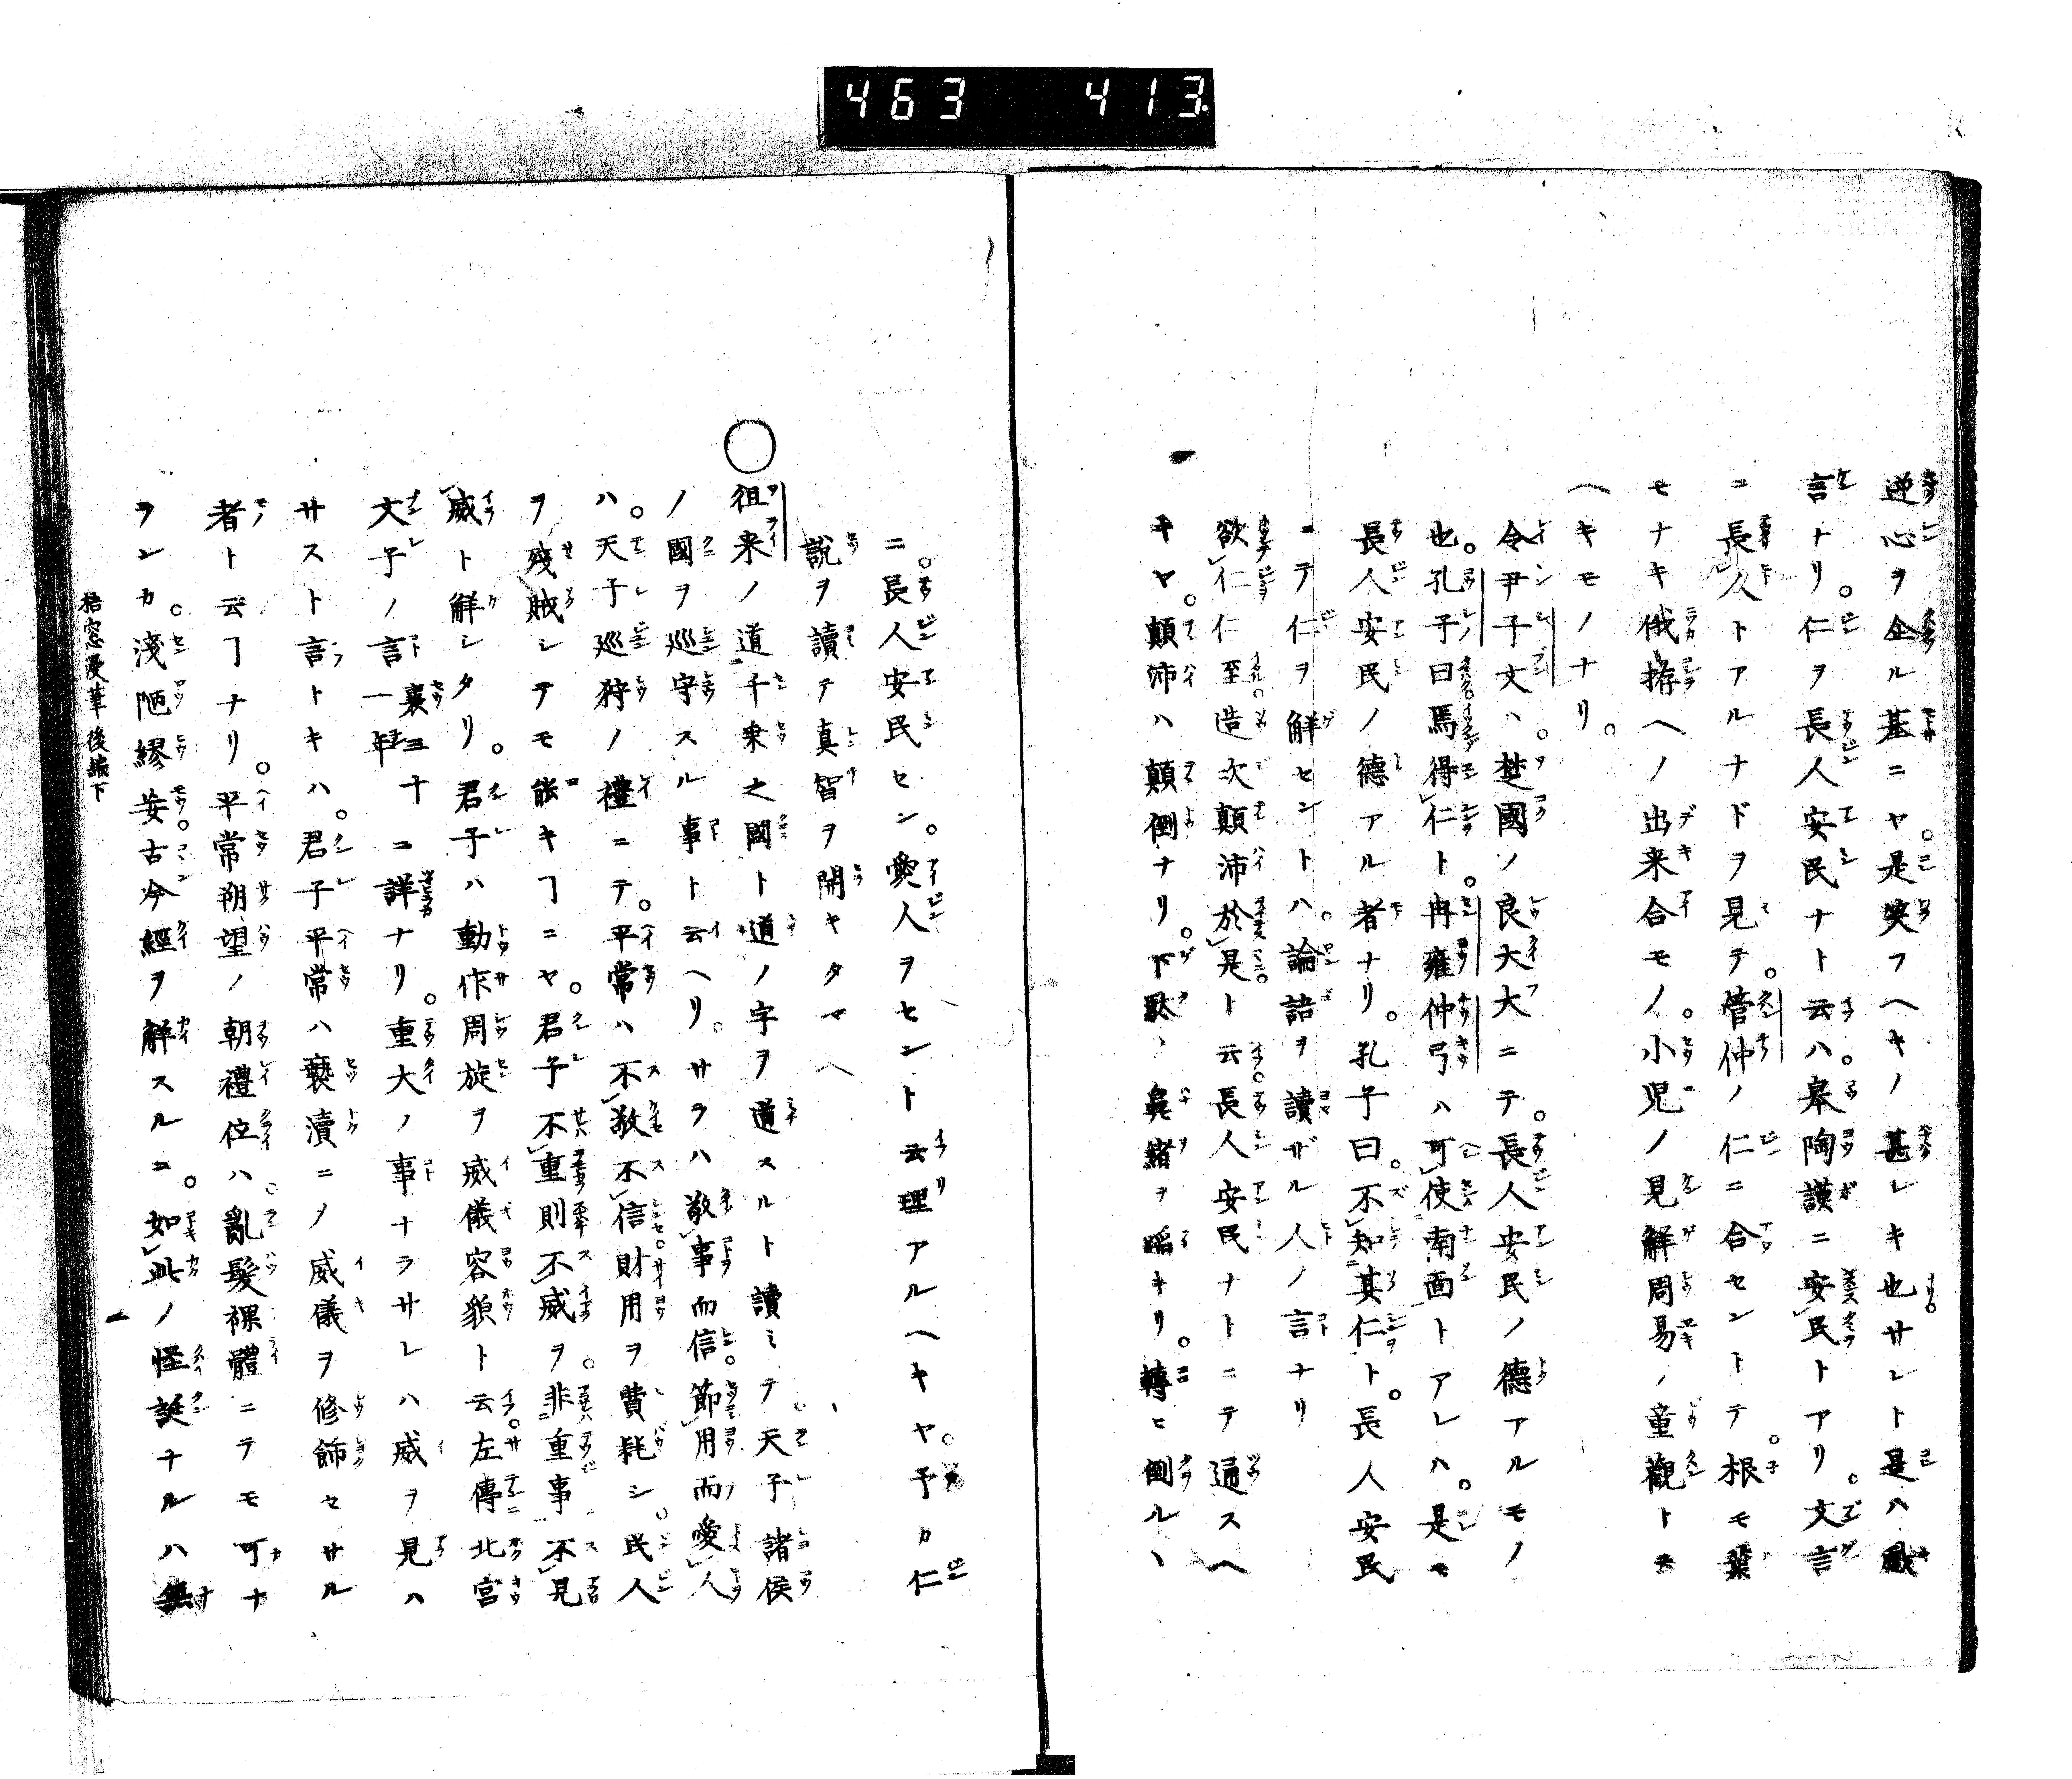 463 413
逆心ヲ企ル基ニヤ。是笑フヘキノ甚シキ也サレト是ハ戲
言ナリ。仁ヲ長人安民ナト云ハ。皋陶謨ニ安民トアリ。文言
ニ長人トアルナドヲ見テ。管仲ノ仁ニ合セントテ。根モ葉
モナキ俄拵ヘノ出来合モノ。小児ノ見解周易ノ童觀トモ
ヘキモノナリ。
令尹子文ハ。楚國ノ良大大ニテ。長人安民ノ德アルモノ
也。孔子曰焉得仁ト。冉雍仲弓ハ可使南面トアレハ。是モ
長人安民ノ德アル者ナリ。孔子曰。不知其仁ト。長人安民
ニテ仁ヲ解セントハ。論語ヲ讀ザル人ノ言ナリ
欲仁仁至。造次顛沛於是ト云。長人安民ナトニテ通スヘ
キヤ。顛沛ハ顛倒ナリ。下駄ヽ鼻緒ヲ キリ。轉ヒ倒ルヽ
ニ。長人安民セン。愛人ヲセント云理アルヘキヤ。予カ仁
說ヲ讀テ真智ヲ開キタマヘ
○徂来ノ道千乗之國ト道ノ字ヲ道スルト讀ミテ。天子諸侯
ノ國ヲ巡守スル事ト云ヘリ。サラハ敬事而信。節用而愛人
ハ。天子巡狩ノ禮ニテ。平常ハ不敬不信財用ヲ費耗シ。民人
ヲ殘賊シテモ能キヿニヤ。君子不重則不威ヲ。非重事不見
威ト解シタリ。君子ハ動作周旋ヲ威儀容貌ト云。左傳北宮
文子ノ言 襄三十一年 ニ詳ナリ。重大ノ事ナラサレハ威ヲ見ハ
サスト言トキハ。君子平常ハ褻瀆ニノ威儀ヲ修飾セサル
者ト云ヿナリ。平常朔望ノ朝禮位ハ。亂髮裸體ニテモ可ナ
ランカ。淺陋繆妄。古今經ヲ解スルニ。如此ノ怪誕ナルハ無
梧窓漫筆後編下